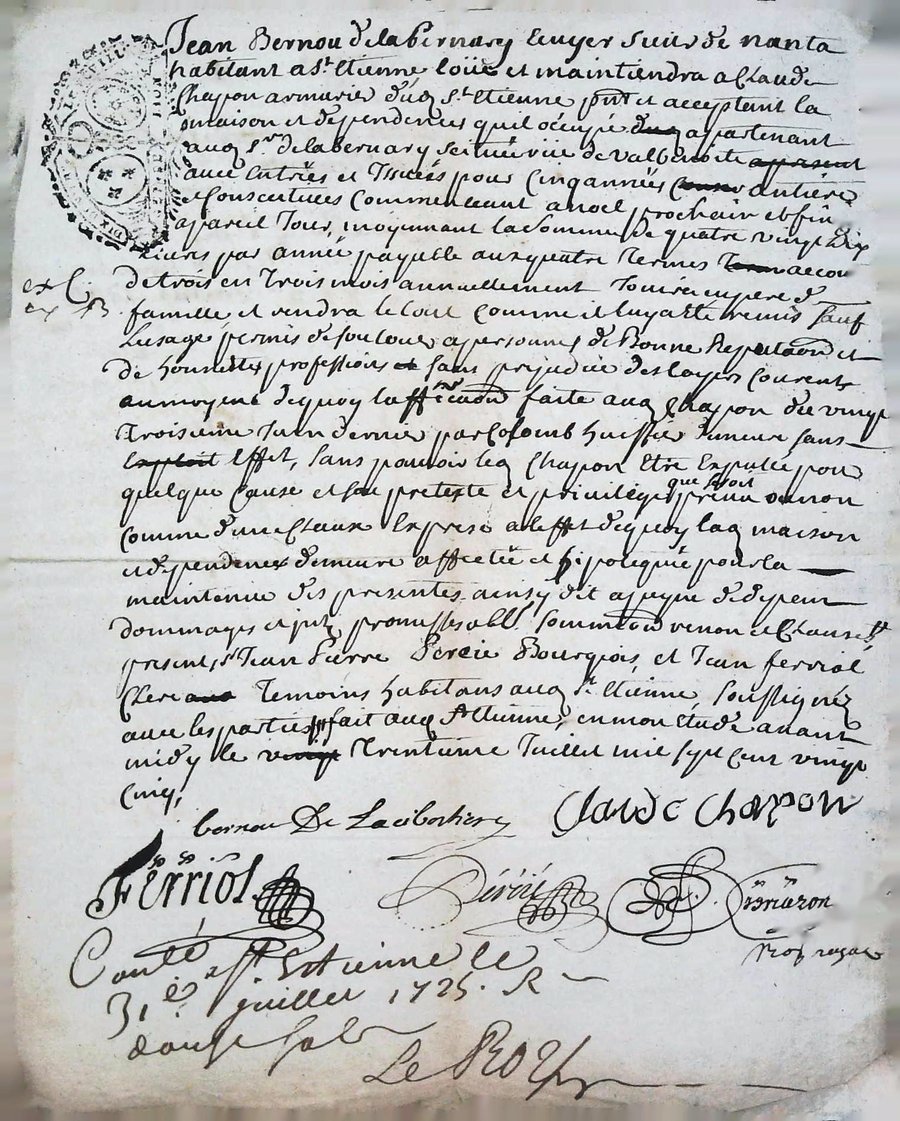 Jean Bernou de la Bernary Ecuyer Sieur de nanta
habitant a St. Etienne loüe et maintiendra a Claude
Chapon armurier dud St. Etienne pnt et acceptant la
maison et dependences quil occupe dud apartenant
aud Sr. de la Bernary Scituée rüe de Valbenoite apresent
avec Entrées et Issües pour Cinq années antiere
et Consecutives Commencant a noel prochain et fin
apareil Jour, moyennant la Somme de quatre vingt dix
Livres par année payable aux quatre termes accou
de trois en Trois mois annuellement Jouira en pere de
famille et rendra le tout Comme il luy a Eté remis Sauf
Lusage permis de soulouer a personnes de Bonne Reputaõn et
de honnestes professions et Sans prejudice des loyers Courents
au moyens dequoy la faite aud Chapon du vingt
Troisieme Juin dernier par Colomb huissier demeure Sans
Exploit Effet, Sans pouvoir led Chapon Etre Expulcé pour
quelque Cause et Sou pretexte et privilege que se soit prevu ou non
Comme dune Clause Expresse a leffet dequoy lad maison
et dependences demeure affectée et hipotequée pour la
maintenue des presentes ainsy dit a peyne de depens
dommages et promesses renon et Clauses
present, Sr. Jean Pierre Bourgois, et Jean ferriol
Clerc Temoins habitans aud St. Etienne, Soussignéz
avec les parties fait aud St. Etienne, en mon Etude avant
midy le vingt Trentieme Juillet mil sept Cent vingt
Cinq,
Claude Chapon
Ferriol
Conté a St. Estienne le
31e. juillet 1725. R
douze sols